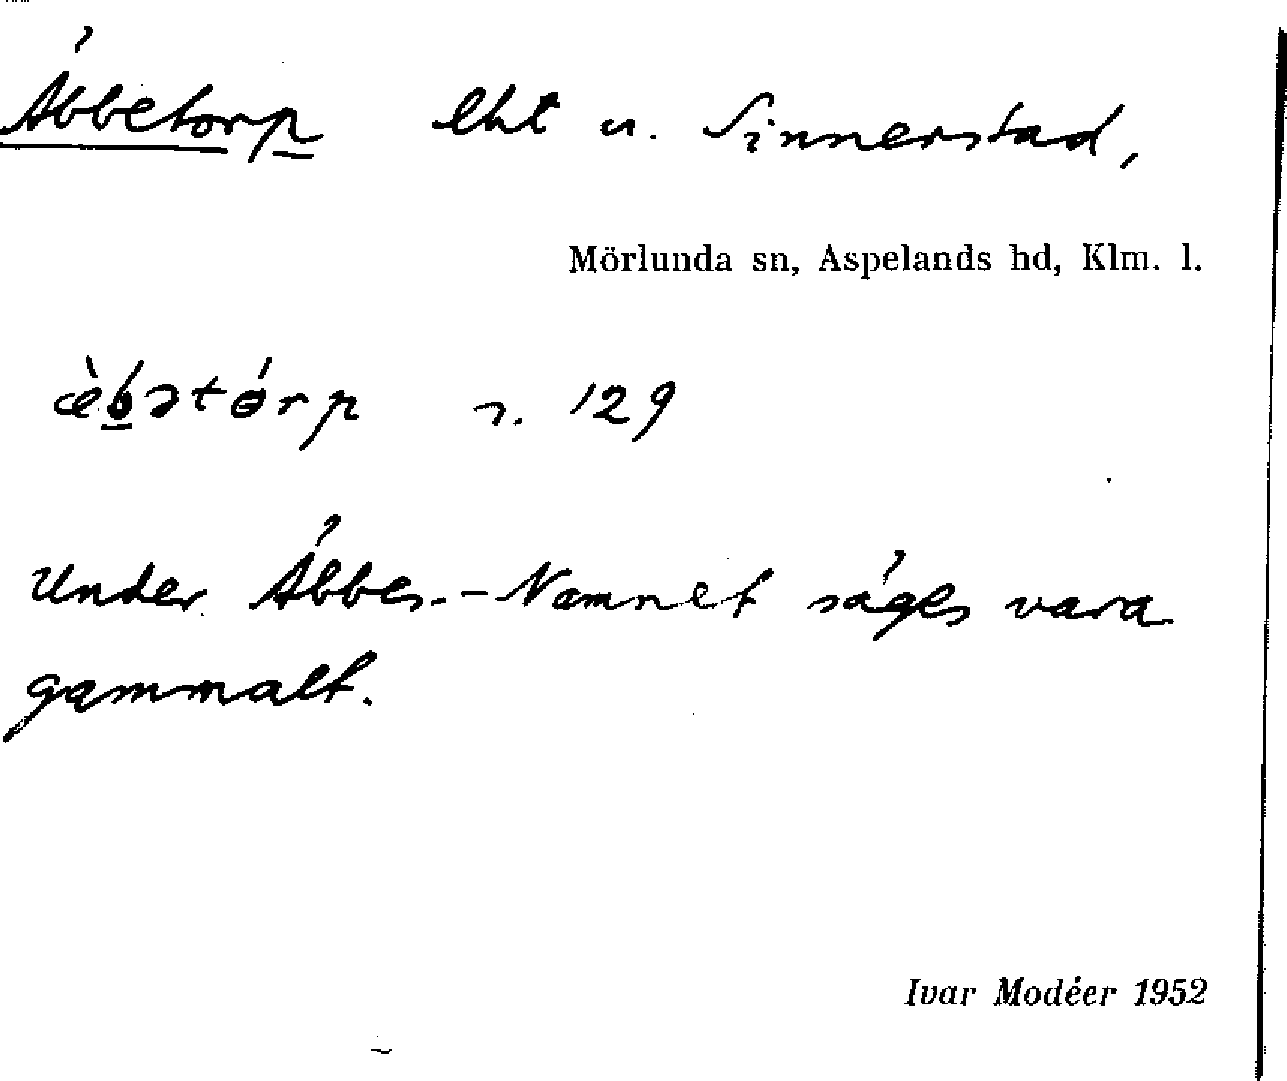 Äbbetorp lht u. Sinnerstad,
Mörlunda sn, Aspelands hd, Klm. l.
æ̀b̲ətɵ́rp s. 129
Under Äbbes.- Namnet säges vara
gammalt.
Ivar Modéer 1952